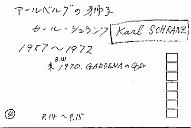 アールベルグの獅子
カール・シュランツ Karl SCHRANZ
1957〜1972
B.W
1970. GARDENA
P.14〜P.15